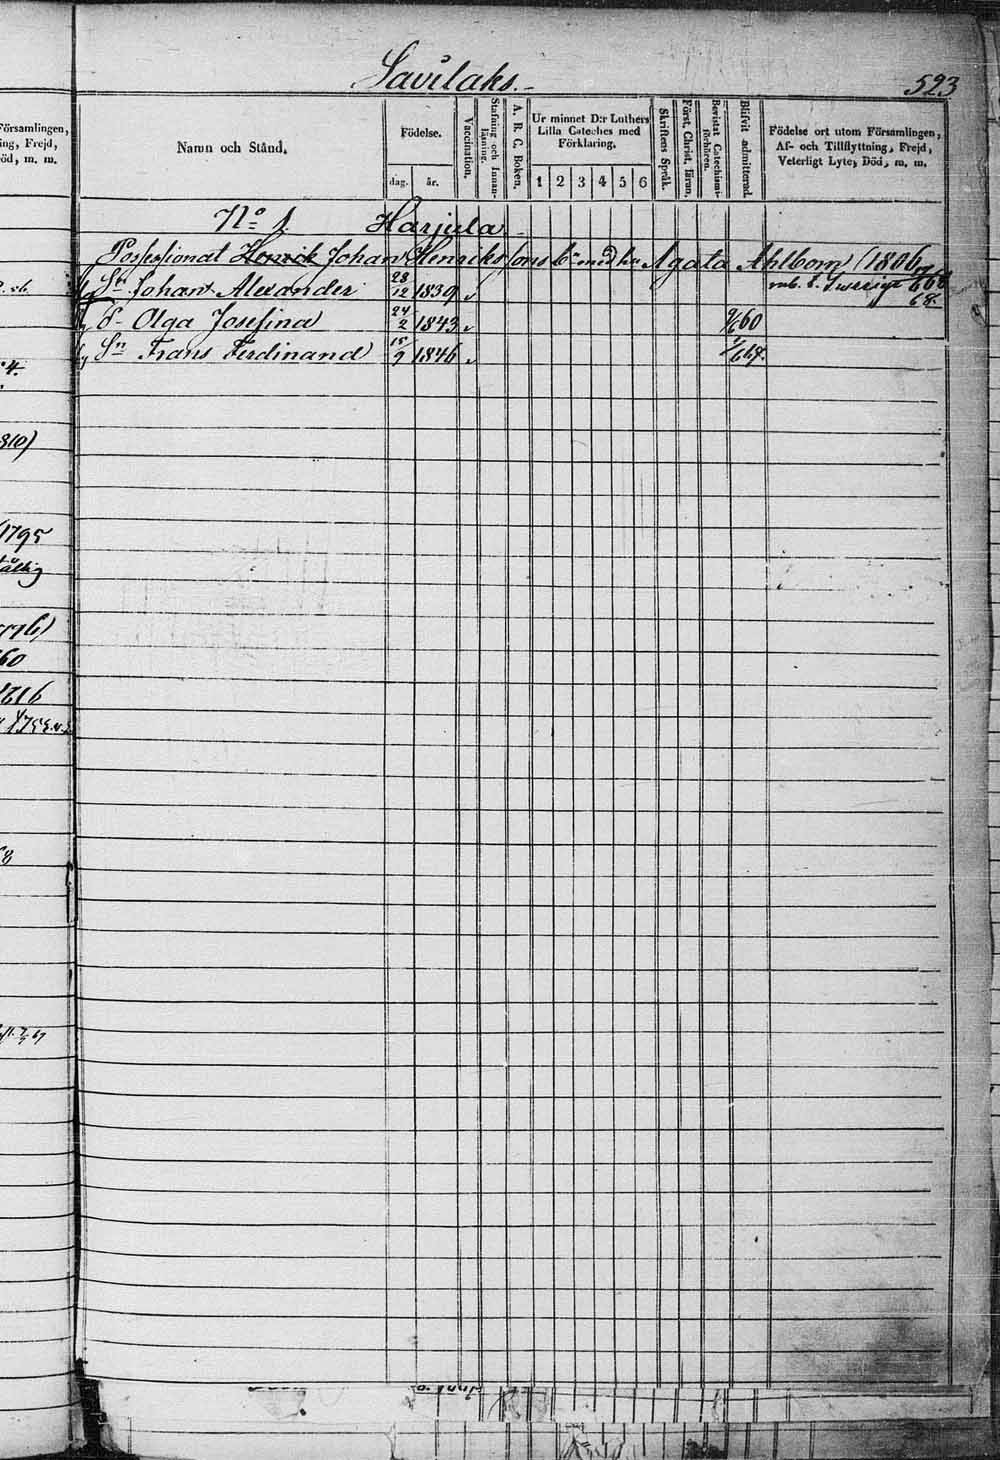 Savilaks.
523
Församlingen,
ing, Frejd,
öd, m. m.
Namn och Stånd.
Födelse.
dag. år.
Vaccination.
Stafning och Innanläsning.
A. B. C. Boken.
Ur minnet D:r Luthers Lilla Cateches med Förklaring.
1 2 3 4 5 6
Skriftens Språk.
Först. Christ. läran.
Bevistat Catechismiförhören.
Blifvit admitterad.
Födelse ort utom Församlingen,
Af- och Tillflyttning, Frejd,
Veterligt Lyte, Död, m. m.
No 1. Harjula
Possessionat Henrik Johan Henrikssons Agata Ahlbom (1806
Sn Johan Alexander 28/12 1839 v
68.
d- Olga Josefina 24/2 1843 v 60
Sn Frans Ferdinand 15/9 1846 v
4.
810)
1795
60
1216